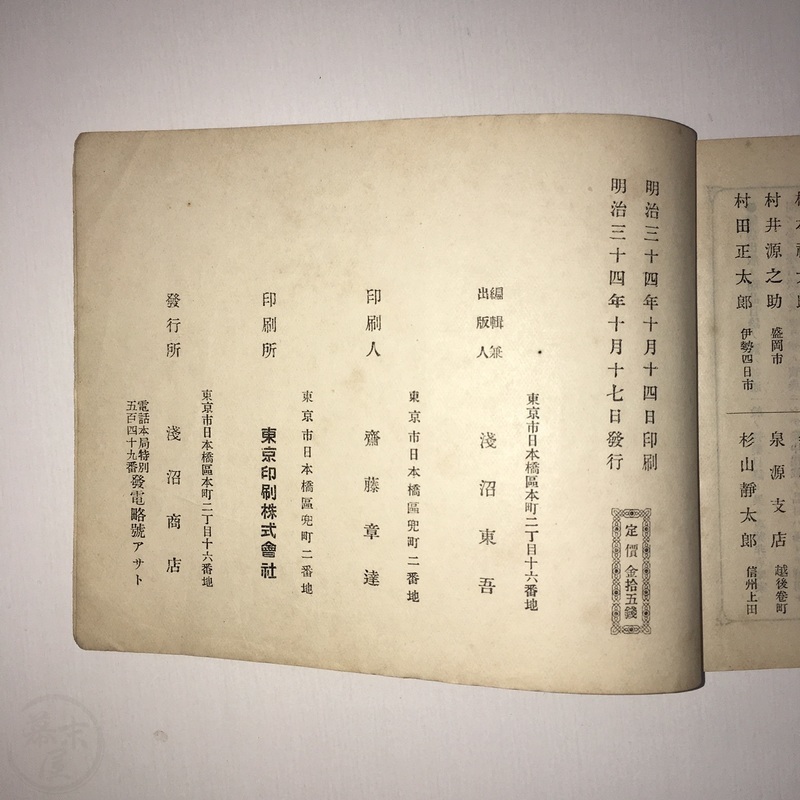 村井源之助 盛岡市
泉源支店 越後卷町
村田正太郎 伊勢四日市
杉山靜太郎 信州上田
明治三十四年十月十四日印刷
明治三十四年十月十七日發行
定價金拾五錢
東京市日本橋區本町二丁目十六番地
編輯兼
出版人
淺沼東吾
東京市日本橋區兜町二番地
印刷人 齋藤章達
東京市日本橋區兜町二番地
印刷所 東京印刷株式會社
東京市日本橋區本町二丁目十六番地
發行所 淺沼商店
電話本局特別
五百四十九番
發電略號アサト
幕末屋